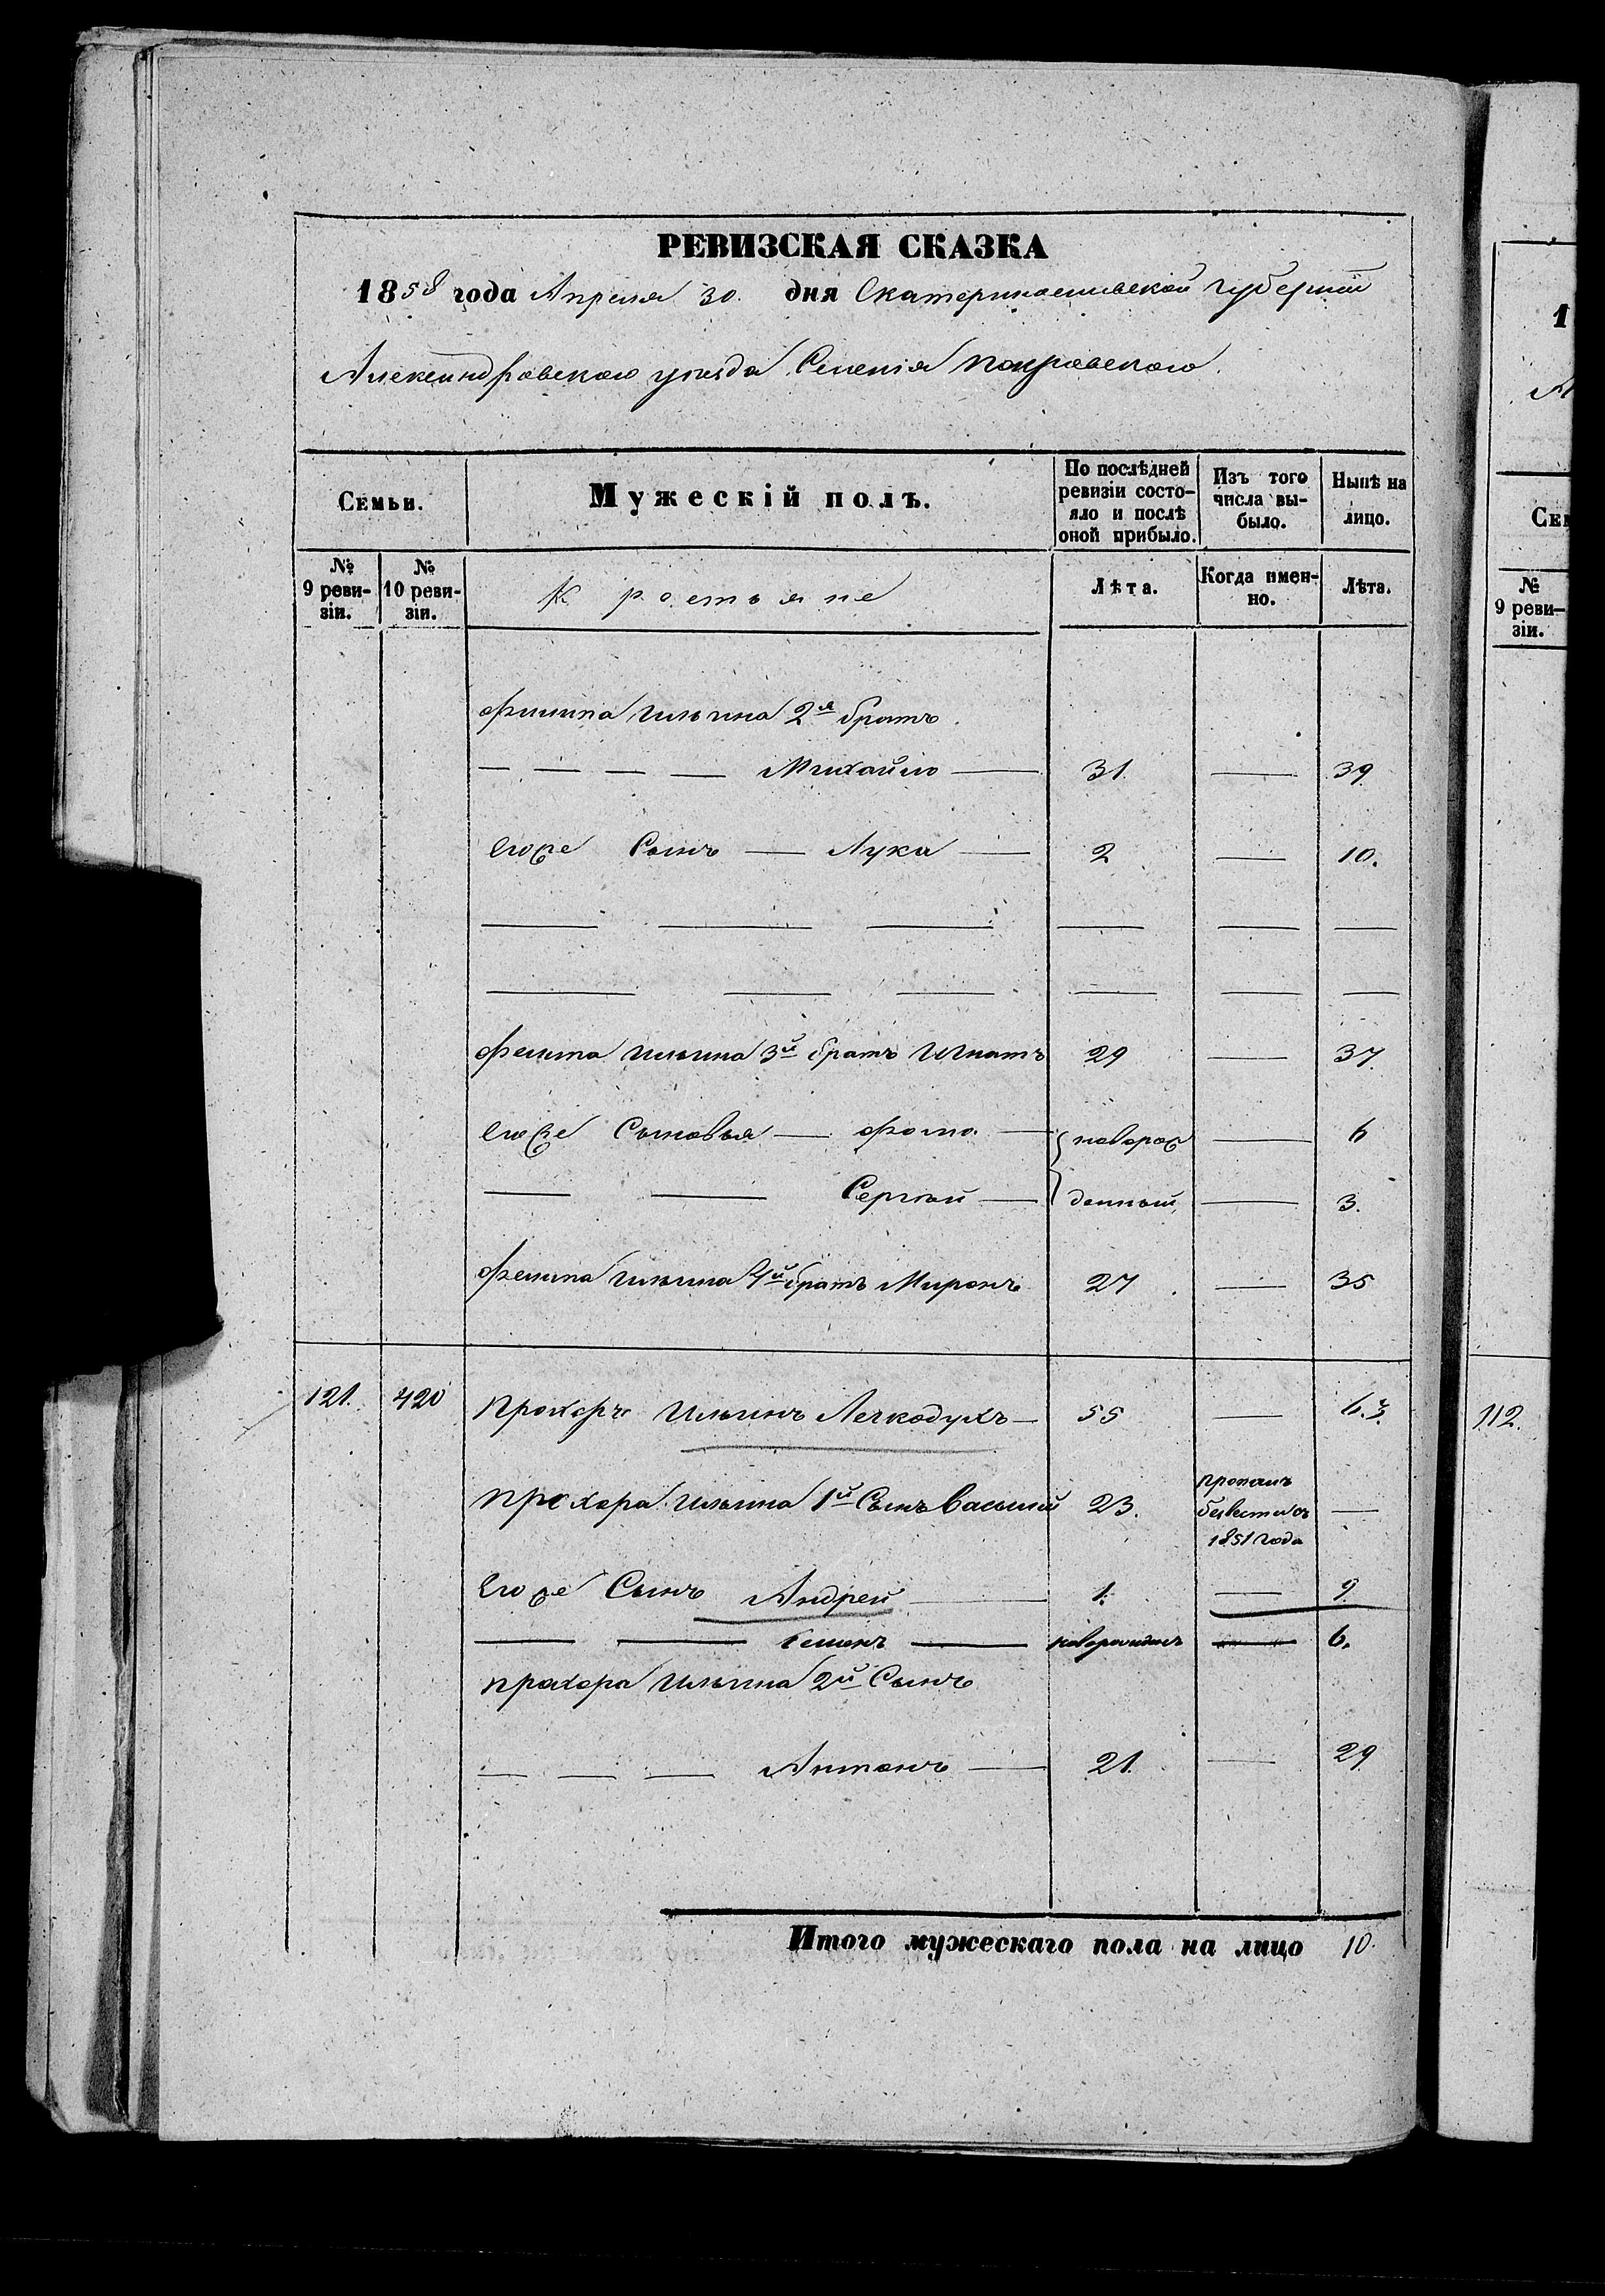 РЕВИЗСКАЯ СКАЗКА
1858 года Апреля 30. дня Екатеринославской губерніи
Александровскаго уезда Селенія Покровского.
Семьи.
Мужескій полъ.
По послѣдней ревизіи состо-
яло и послѣ оной прибыло.
Изъ того числа вы-
было.
Нынѣ на лицо.
№ 9 реви-
зіи.
№ 10 реви-
зіи.
Крестьяне
Лѣта.
Когда имен-
но.
Лѣта.
Филипа Ильина 2й братъ.
Михайло 31. 39.
Егоже Сынъ Лука 2 10.
Филипа Ильина 3й братъ Игнатъ 29 37.
Егоже Сыновья Фома новорож 6
Сергѣй денный 3.
Филипа Ильина 4й братъ Миронъ 27 35
121. 420 Прохоръ Ильинъ Легкодухъ 55 63.
Прохора Ильина 1й Сынъ Василий 23. пропалъ
безвестно съ
1851 года
Егоже Сынъ Андрей 1. 9
Семенъ новорожденъ 6.
Прохора Ильина 2й Сынъ
Антонъ 21. 29
Итого мужескаго пола на лицо 10.
1
А
Сем
№
9 реви-
зіи.
112.